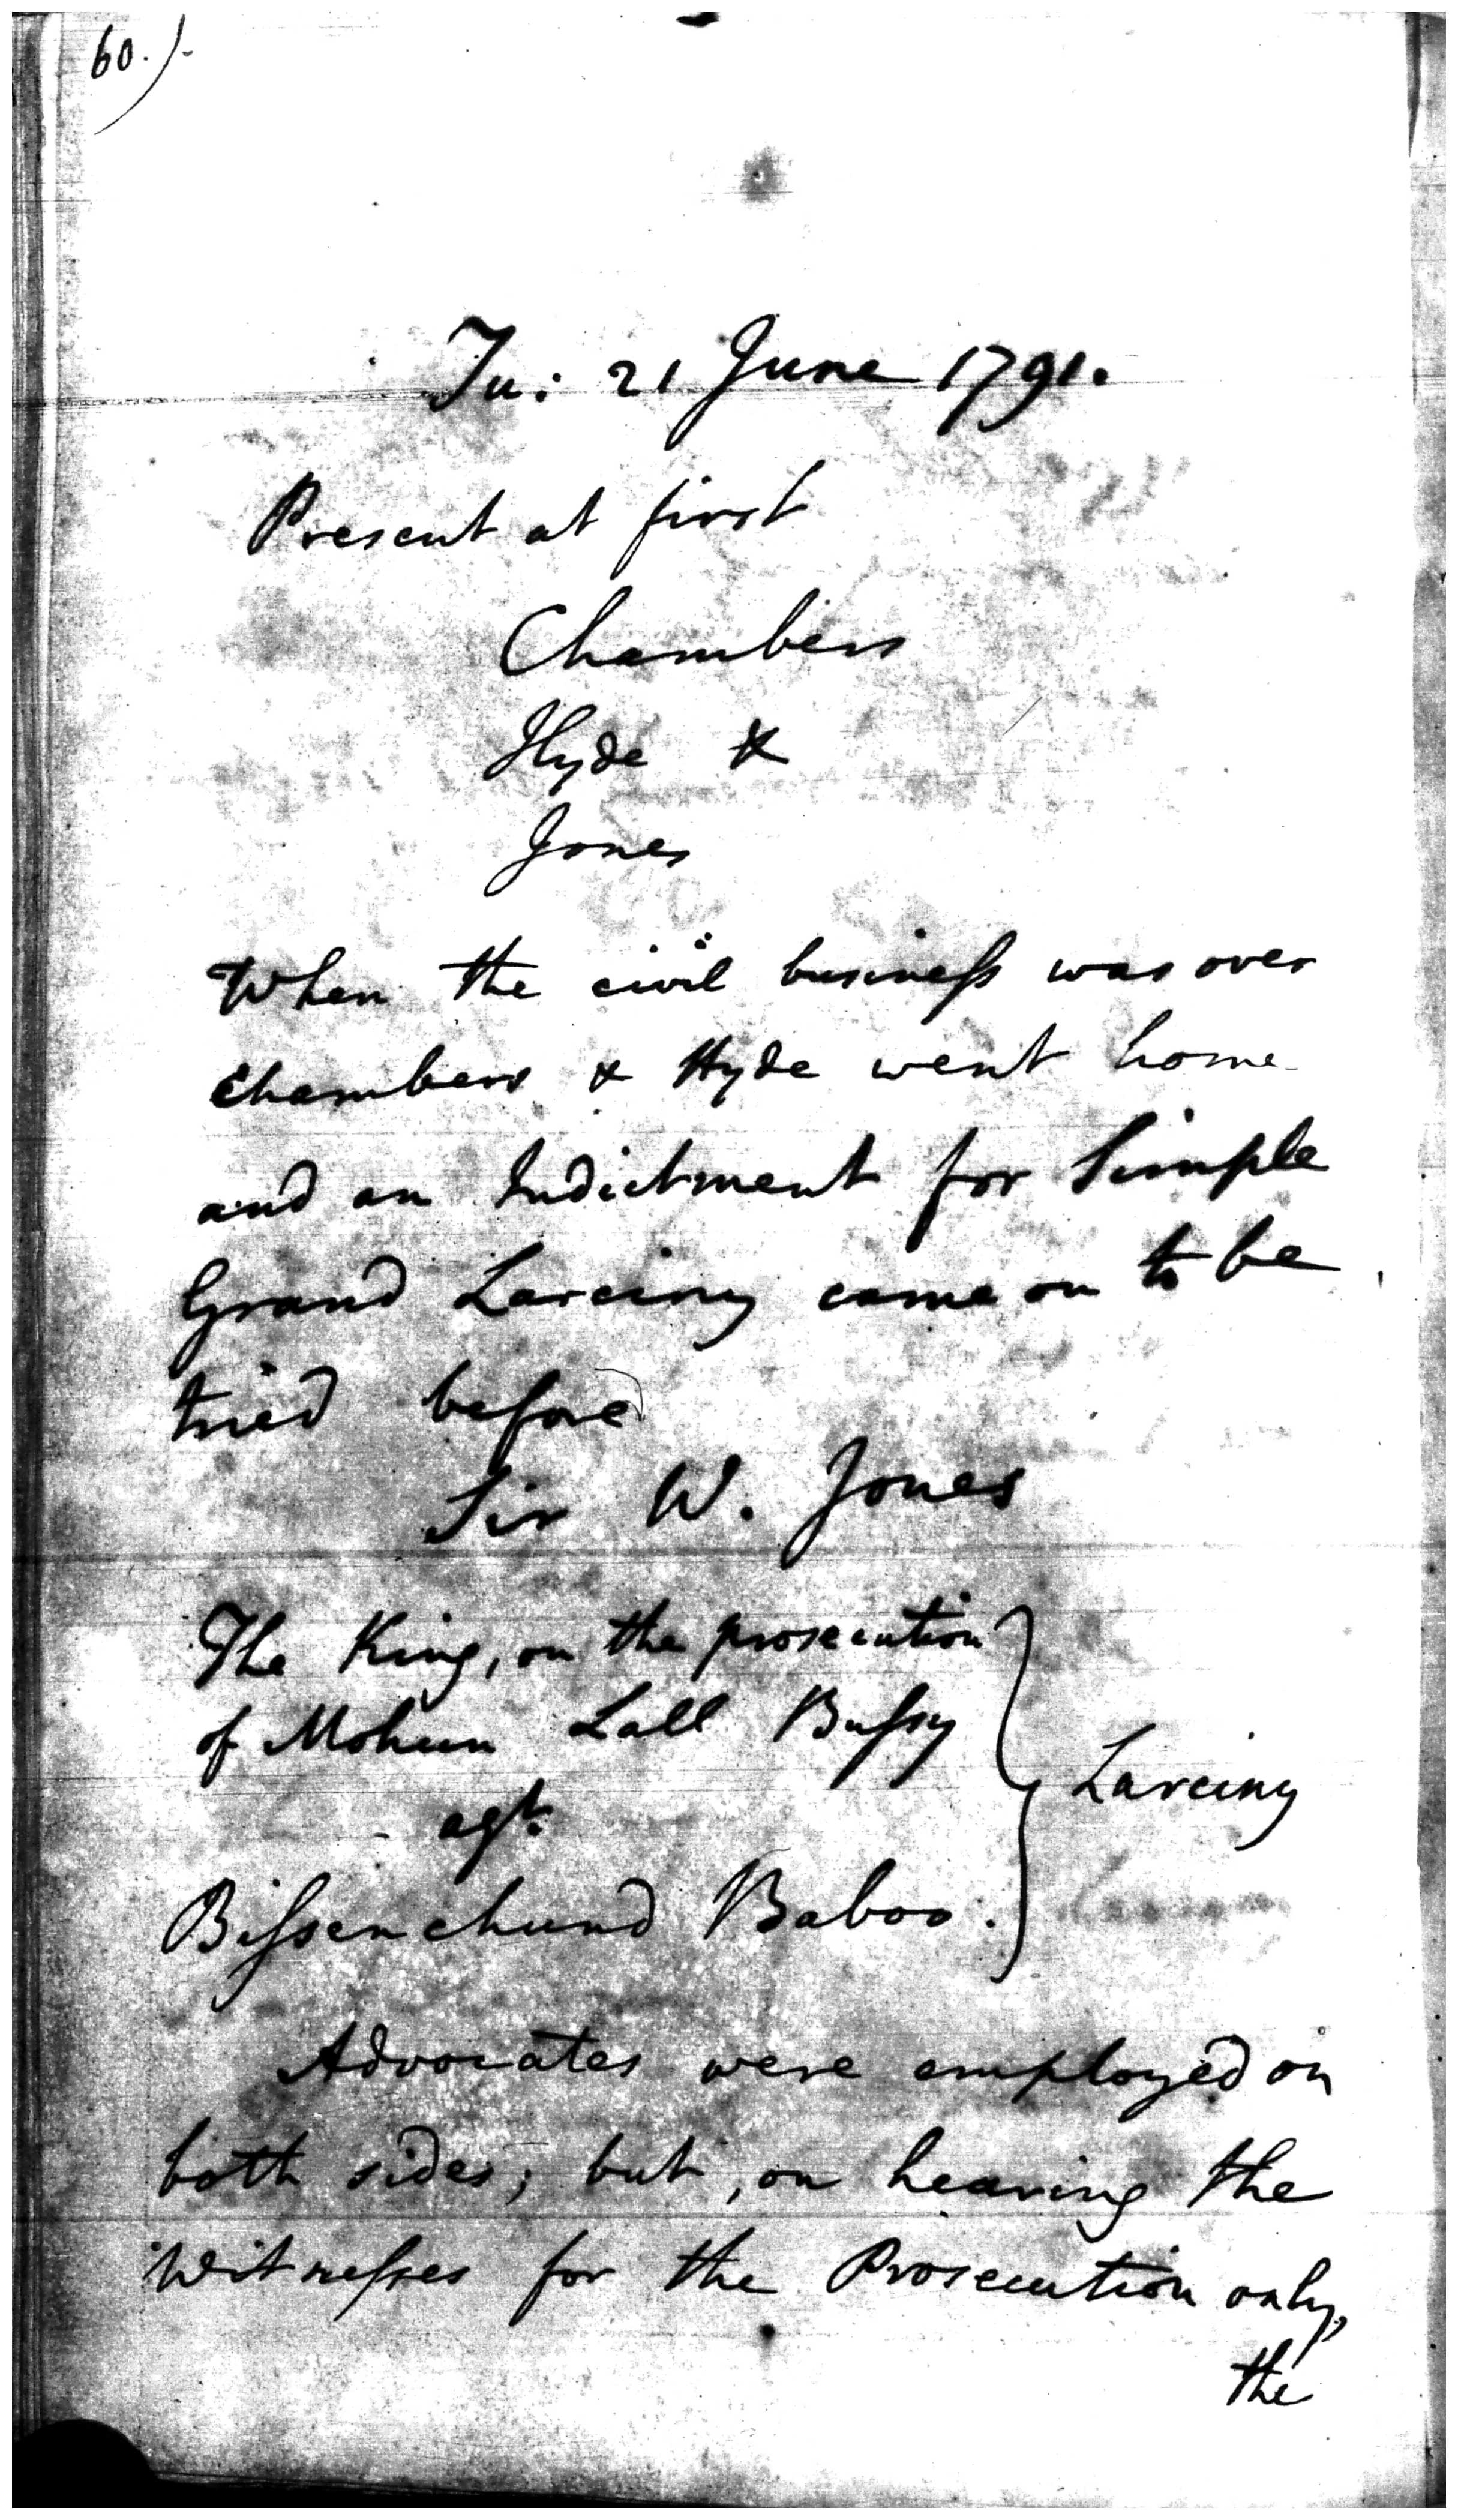 60.)-
Tu: 21 June 1791.
Present at first
Chambers
Hyde &
Jones
When the civil business was over
Chambers & Hyde went home
and an Indictment for Simple
Grand Larciny came on to be
tried before
Sir W. Jones
The King, on the prosecution
of Mohun Lall Bussy
agt.
Larciny
Bissenchund Baboo.
Advocates were employed on
both sides; but, on hearing the
Witnesses for the Prosecution only,
the